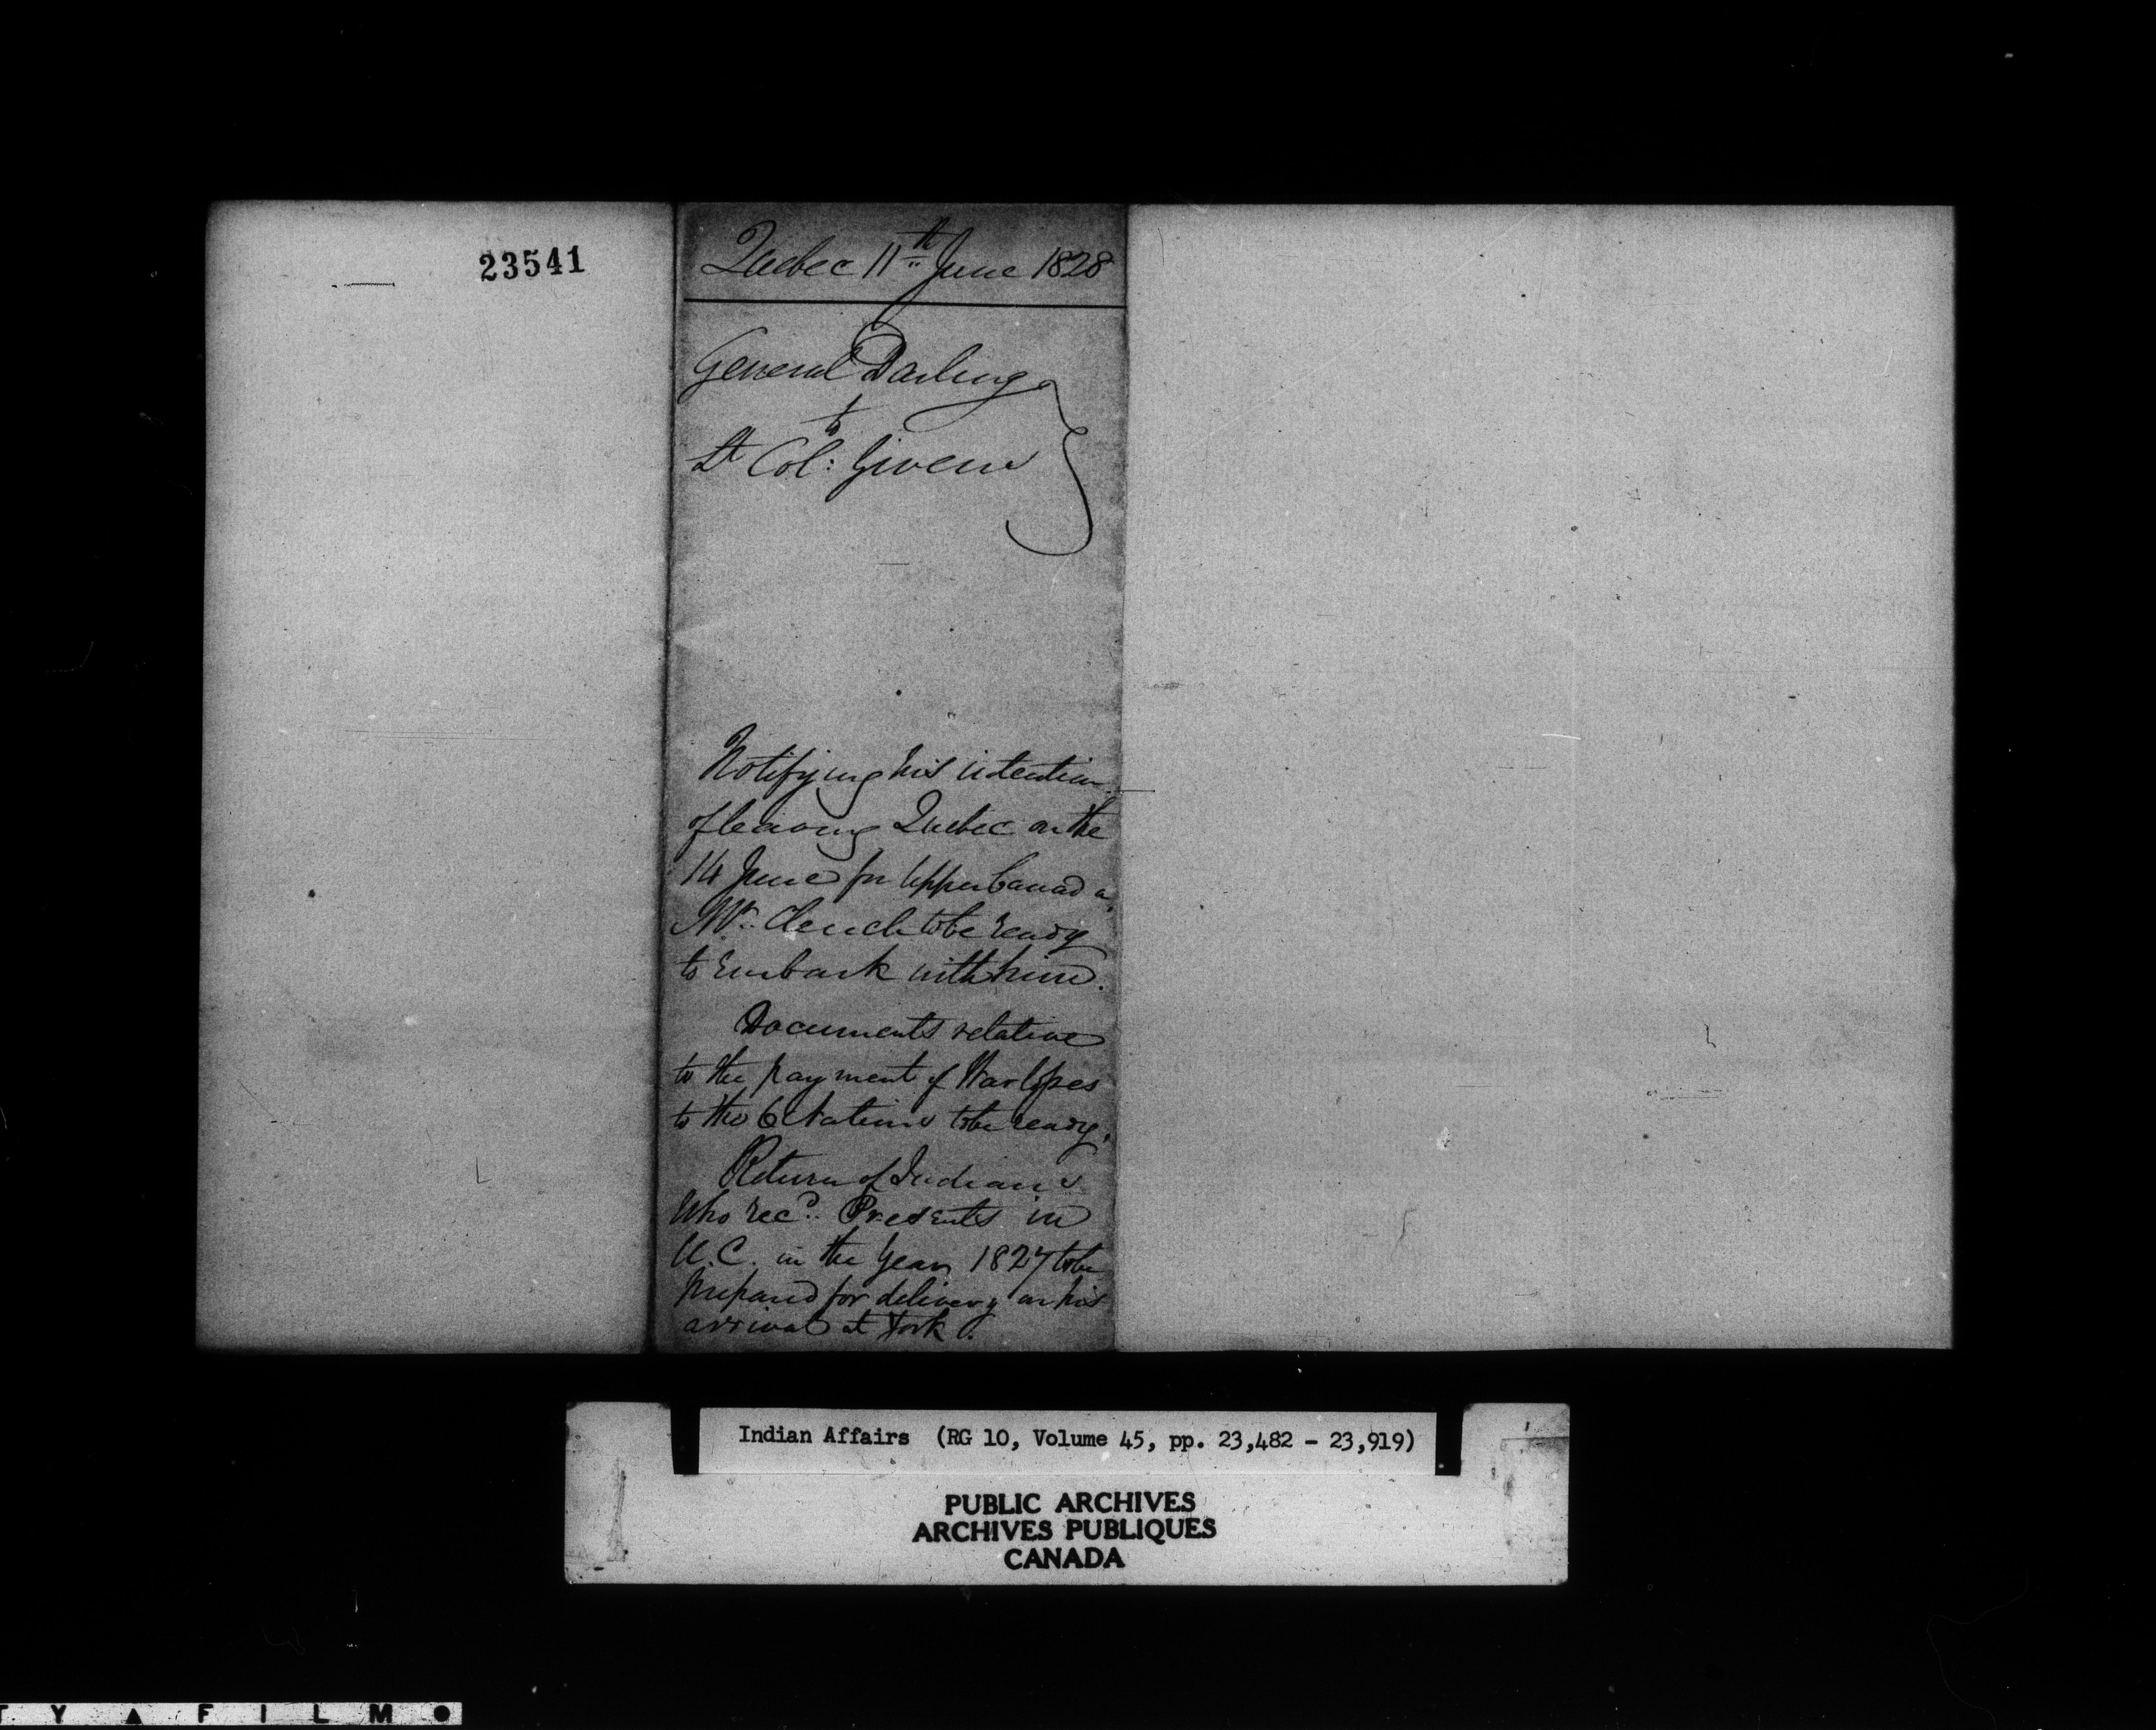 23541
Quebec 11th June 1828
General Darling
to
Lt Col: Givens
Notifying his intention
of leaving Quebec on the
14 June for Upper Canada,
Mr. Clench to be ready
to Embark with him.
Documents relative
to the payment of War Losses
to the 6 Nations to be ready.
Return of Indians
Who recd. Presents in
U.C. in the Year 1827 to be
prepared for delivery on his
arrival at York.
Indian Affairs (RG 10, Volume 45, pp. 23,482 - 23,919)
PUBLIC ARCHIVES
ARCHIVES PUBLIQUES
CANADA
T Y ▲ F I L M ●